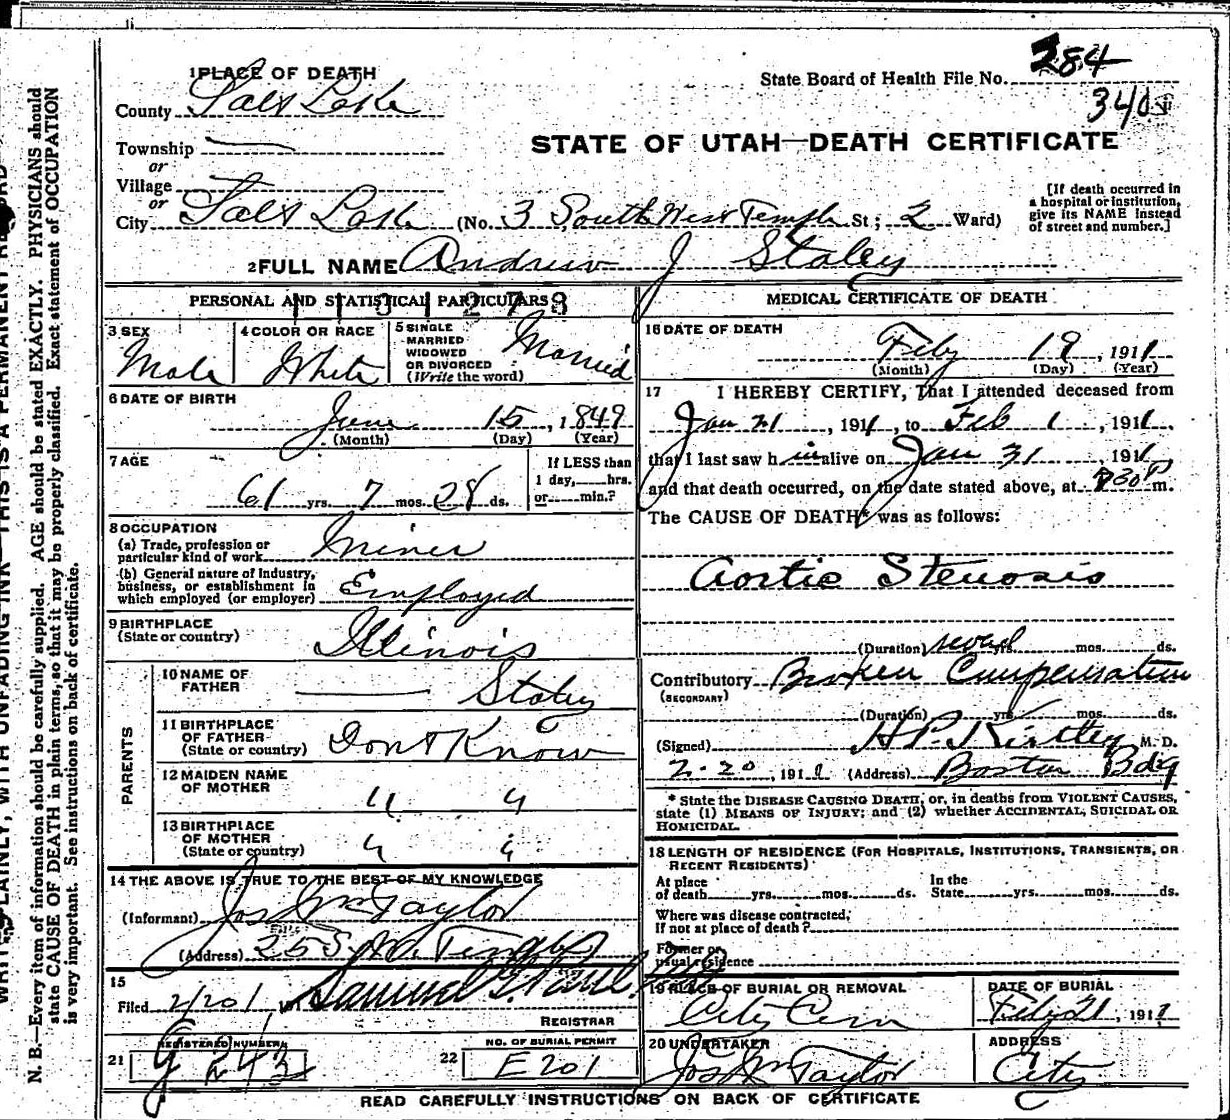 284
State Board of Health File No.
340
1 PLACE OF DEATH
County Salt Lake
STATE OF UTAH—DEATH CERTIFICATE
Township
or
Village
or
City Salt Lake (No. 3 South West Temple St; 2 Ward)
[If death occurred in
a hospital or institution,
give its NAME instead
of street and number.]
2 FULL NAME Andrew J Staley
PERSONAL AND STATISTICAL PARTICULARS
3 SEX
Male
4 COLOR OR RACE
White
5 SINGLE
MARRIED
WIDOWED
OR DIVORCED
(Write the word)
Married
6 DATE OF BIRTH
June 15, 1849
(Month) (Day) (Year)
7 AGE
61 yrs. 7 mos. 28 ds.
If LESS than
1 day,____hrs.
or____min.?
8 OCCUPATION
(a) Trade, profession or
particular kind of work Miner
(b) General nature of industry,
business, or establishment in
which employed (or employer) Employed
9 BIRTHPLACE
(State or country) Illinois
PARENTS
10 NAME OF
FATHER Staley
11 BIRTHPLACE
OF FATHER
(State or country) Dont Know
12 MAIDEN NAME
OF MOTHER " "
13 BIRTHPLACE
OF MOTHER
(State or country) " "
14 THE ABOVE IS TRUE TO THE BEST OF MY KNOWLEDGE
(Informant) Jos Wm Taylor
(Address) 25 S. W. Temple
15
Filed 2/20 1 191 Samuel G. Paul
REGISTRAR
REGISTERED NUMBER
21 243
NO. OF BURIAL PERMIT
22 E201
MEDICAL CERTIFICATE OF DEATH
16 DATE OF DEATH
Feby 19, 1911
(Month) (Day) (Year)
17 I HEREBY CERTIFY, That I attended deceased from
Jan 21, 1911, to Feb 1, 1911.
that I last saw h im alive on Jan 31, 1911
and that death occurred, on the date stated above, at 830 P m.
The CAUSE OF DEATH* was as follows:
Aortic Stenosis
(Duration) several yrs. mos. ds.
Contributory Broken Compensation
(SECONDARY)
(Duration) yrs. mos. ds.
(Signed) H P. Kirtley M. D.
2-20, 1911 (Address) Boston Bdg
* State the DISEASE CAUSING DEATH, or, in deaths from VIOLENT CAUSES,
state (1) MEANS OF INJURY; and (2) whether ACCIDENTAL, SUICIDAL OR
HOMICIDAL.
18 LENGTH OF RESIDENCE (FOR HOSPITALS, INSTITUTIONS, TRANSIENTS, OR
RECENT RESIDENTS)
At place In the
of death____yrs.____mos.____ds. State____yrs.____mos.____ds.
Where was disease contracted,
If not at place of death?
Former or
usual residence
19 PLACE OF BURIAL OR REMOVAL
City Cem
DATE OF BURIAL
Feby 21, 1911
20 UNDERTAKER
Jos Wm Taylor
ADDRESS
City
READ CAREFULLY INSTRUCTIONS ON BACK OF CERTIFICATE
WRITE PLAINLY, WITH UNFADING INK—THIS IS A PERMANENT RECORD
N. B.—Every item of information should be carefully supplied. AGE should be stated EXACTLY. PHYSICIANS should
state CAUSE OF DEATH in plain terms, so that it may be properly classified. Exact statement of OCCUPATION
is very important. See instructions on back of certificate.